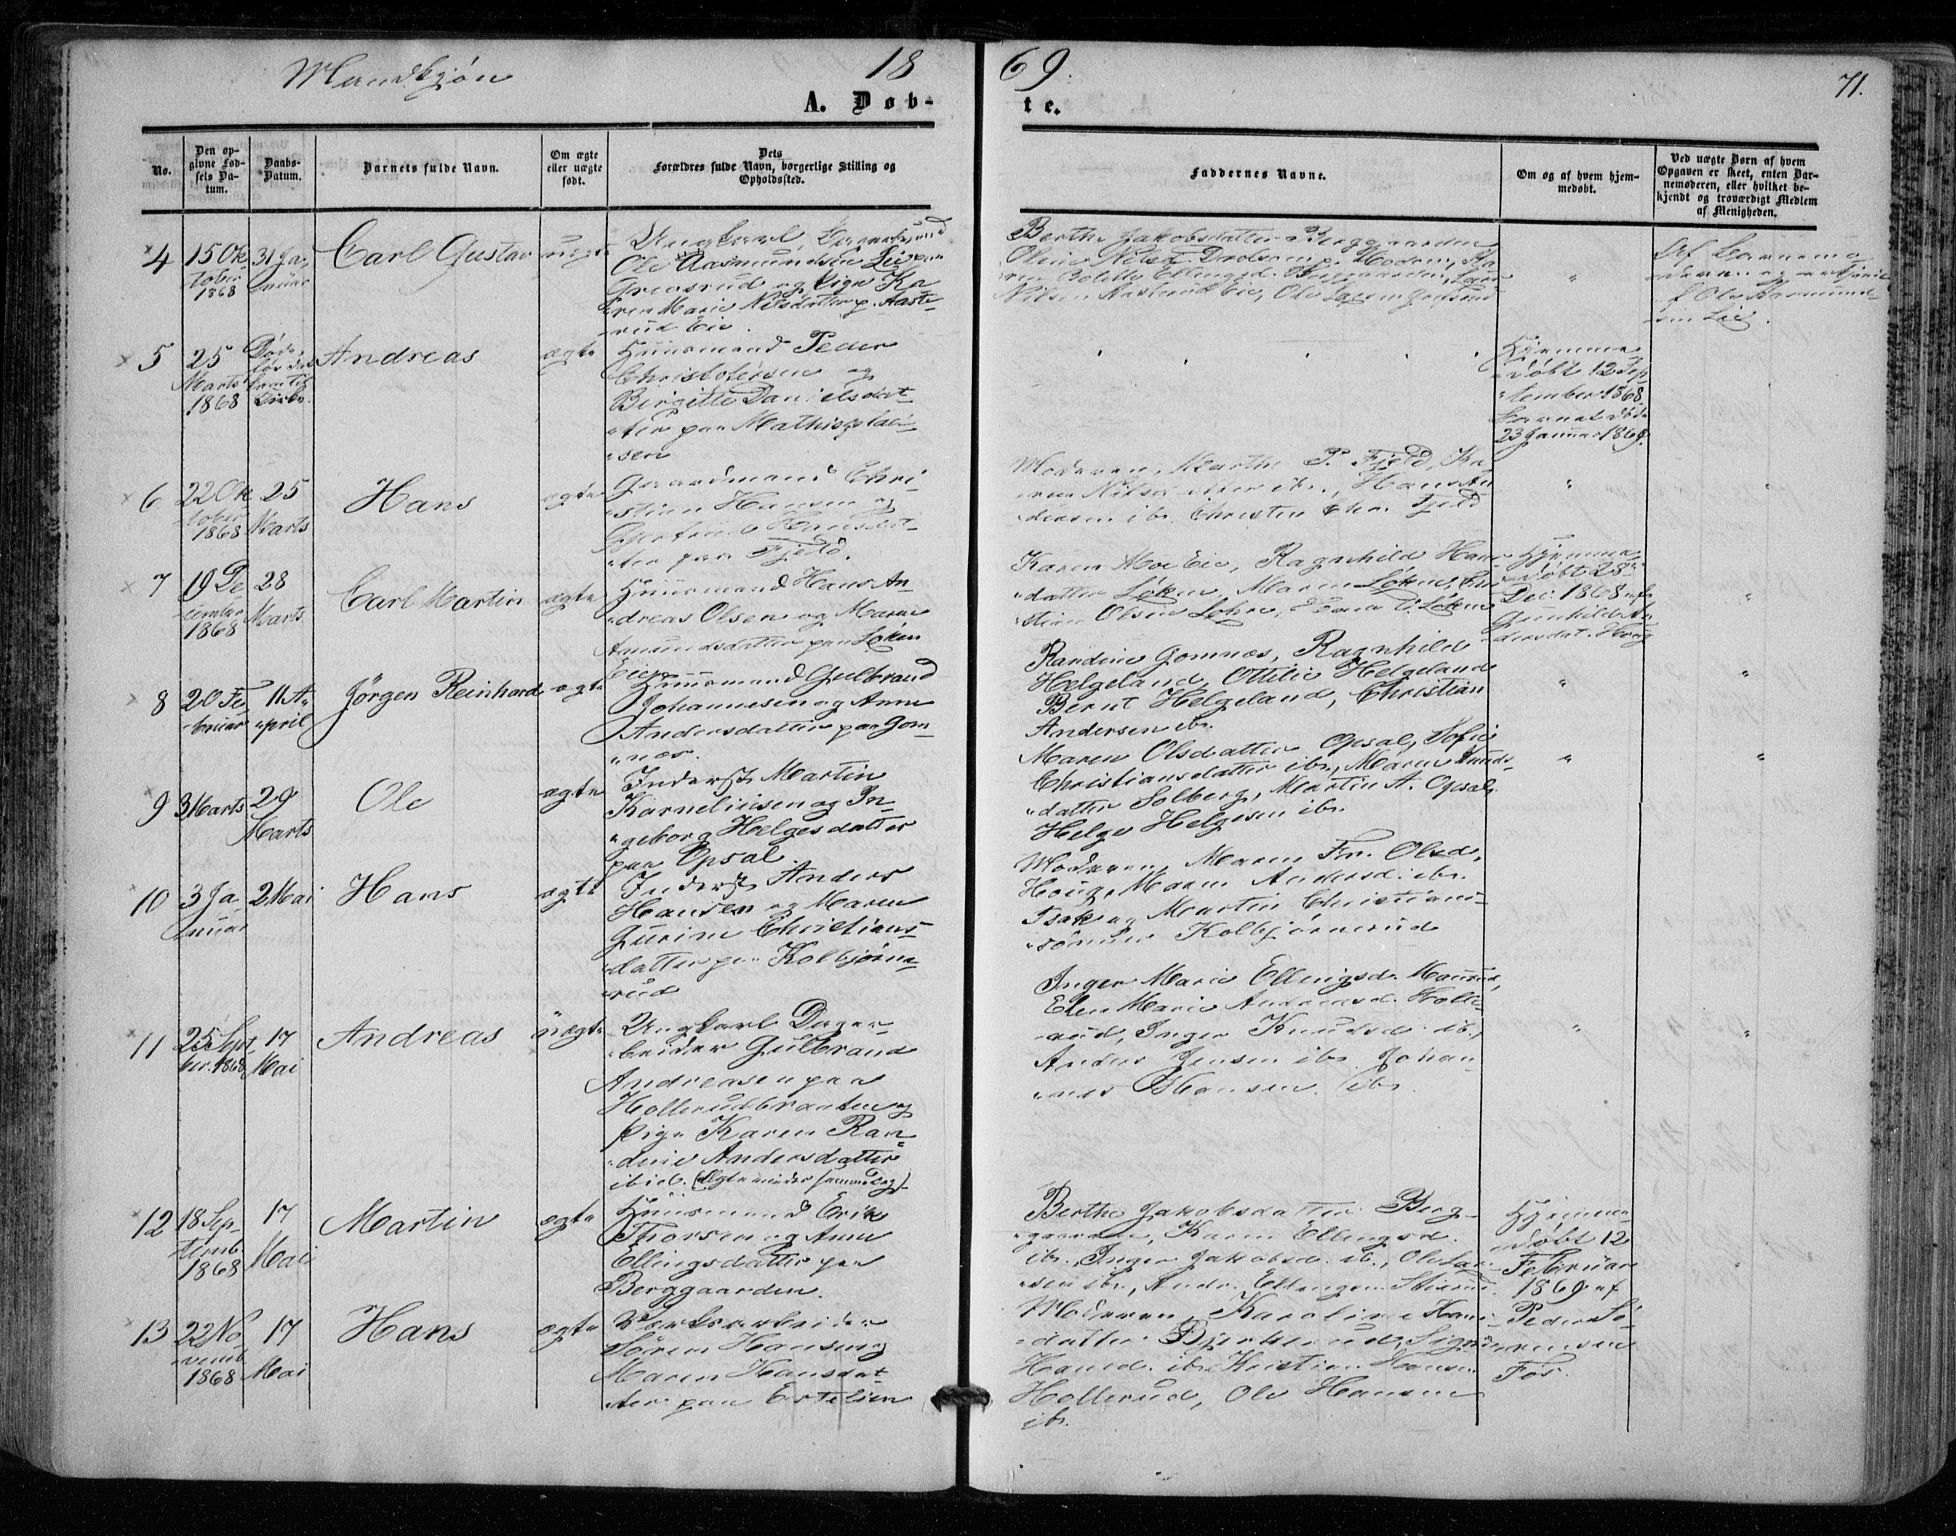 Mandkjøn
18
69.
71.
A. Døb-
te.
No.
Den op-
givne Fød-
sels Da-
tum.
Daabs-
Datum.
Barnets fulde Navn.
Om ægte
eller uægte
født.
Dets
Forældres fulde Navn, borgerlige Stilling og
Opholdssted.
Faddernes Navne.
Om og af hvem hjem-
medøbt.
Ved uægte Børn af hvem
Opgaven er skeet, enten Bar-
nemoderen, eller hvilket be-
kjendt og troværdigt Medlem
af Menigheden.
4
15 Ok
tober
1868
31 Ja-
nuar
Carl Gustav
uægte
Ungkarl,
Ole Rasmundsen Lie paa
og Pige Ka
ren Marie Nilsdatter p. Aaste
rud Eie.
Berthe Jakobsdatter Berggaarden
Nilsen Aasterud Eie, Ole Larsen
"
Af Barnemo
deren og
Ole Rasmund-
sen Lie.
5
25
Marts
1868
Andreas
ægte
Huusmand Peder
Christofersen og
Birgitte Danielsdat
ter paa Mathisplad-
sen
Hjemme
døbt 12 Sep
tember 1868.
Barnet døde
23 Januar 1869.
6
22 Ok
tober
1868
25
Marts
Hans
ægte
Gaardmand Chri-
stian Hansen og
Gjertrud Hansdat-
ter paa Fjeld.
Moderen, Marthe P. Fjeld, Ka-
ren Nilsdatter ib., Hans An
dersen ib. Christen Chr. Fjeld
"
"
7
19 De
cember
1868
28
Marts
Carl Martin
ægte
Huusmand Hans An-
dreas Olsen og Maren
Amundsdatter paa Løken
Eie
Karen Moe Eie, Ragnhild Hans
datter Løken, Maren Løken, Chri
stian Olsen Løken,
Hjemme
døbt 28
Dec. 1868 af
Gunhild An
dersdat.
"
8
20 Fe
bruar
11 A-
pril
Jørgen Reinhard
ægte
Huusmand Gulbrand
Johannesen og Anne
Andersdatter paa Gom-
næs.
Randine Gomnæs, Ragnhild
Helgeland, Ottilie Helgeland
Bernt Helgeland, Christian
Andersen ib.
"
"
9
3 Marts
29
Marts
Ole
ægte
Inderst Martin
Karneliusen og In-
geborg Helgesdatter
paa Opsal.
Maren Olsdatter Opsal, Sofie
Christiansdatter ib., Maren Knuds-
datter Solberg, Martin A. Opsal,
Helge Helgesen ib.
"
"
10
3 Ja-
nuar
2 Mai
Hans
ægte
Inderst Anders
Hansen og Maren
Gurine Christians-
datter paa Kolbjørns-
rud
Moderen, Maren Fr. Olsd.
Houg, Maren Andersd. ib.
Isak og Martin Christian-
sønner Kolbjørnsrud
11
25 Sept
br. 1868
17
Mai
Andreas
uægte
Ungkarl Dagar-
beider Gulbrand
Andreasen paa
Hollerudbraaten og
Pige Karen Ran-
dine Andersdatter
ibid. (Ægtevi
Inger Marie Ellingsd. Maurud,
Elen Marie Andreasd. Holle-
rud, Inger Knudsd. ib.,
Anders Jensen ib. Johan-
nes Hansen ib.
"
"
12
18 Sep-
temb.
1868
17
Mai
Martin
ægte
Huusmand Erik
Thorsen og Anne
Ellingsdatter paa
Berggaarden.
Berthe Jakobsdatter Berg-
gaarden, Karen Ellingsd.
ib., Inger Jakobsd. ib., Ole Lar-
sen ib., Andr. Ellingsen
Hjemme-
døbt 12
Februar
1869 af
Peder Sø-
rensen
Fos.
13
22 No
vemb.
1868
17
Mai
Hans
ægte
Værksarbeider
Søren Hansen og
Maren Hansdat
ter paa Ertelien
Moderen, Karoline Hans-
datter Bjerkerud, Signe
Hansd. ib. Kristian Hansen
Hollerud, Ole Hansen
ib.